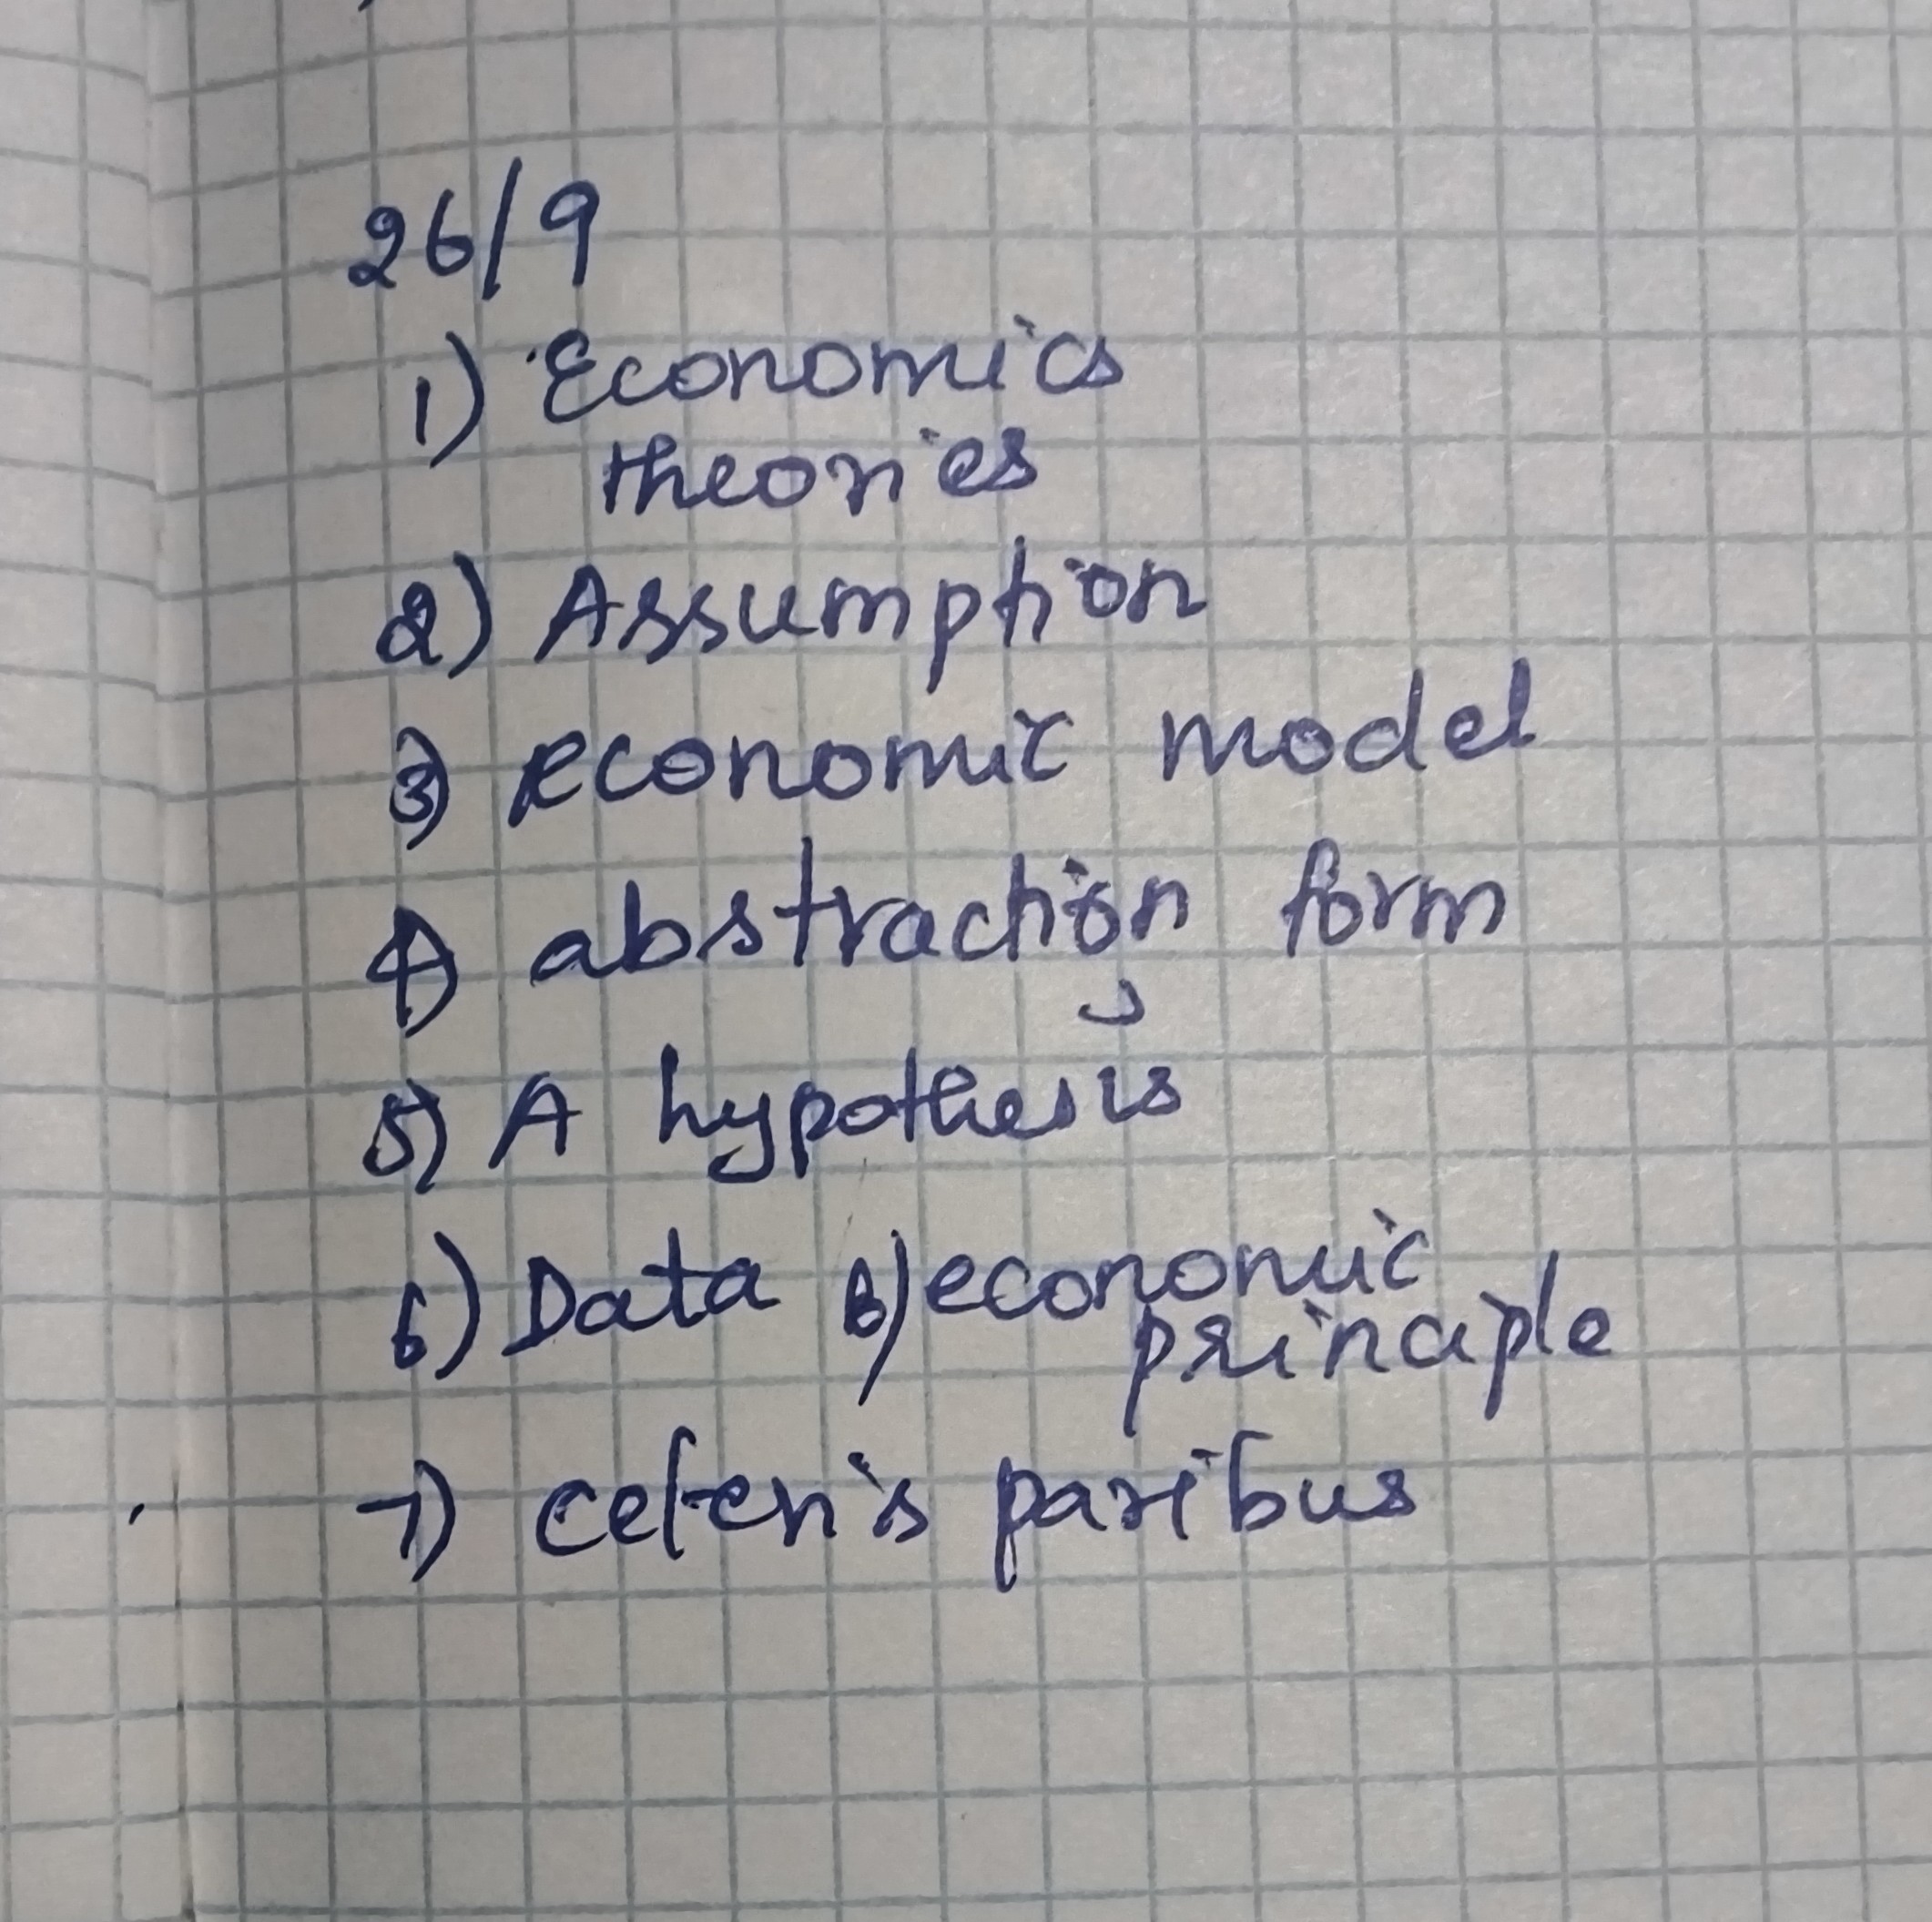 26/9
1) Economics
theories
2) Assumption
3) economic model
4) abstraction form
5) A hypothesis
6) Data 8) economic
principle
7) ceteris paribus